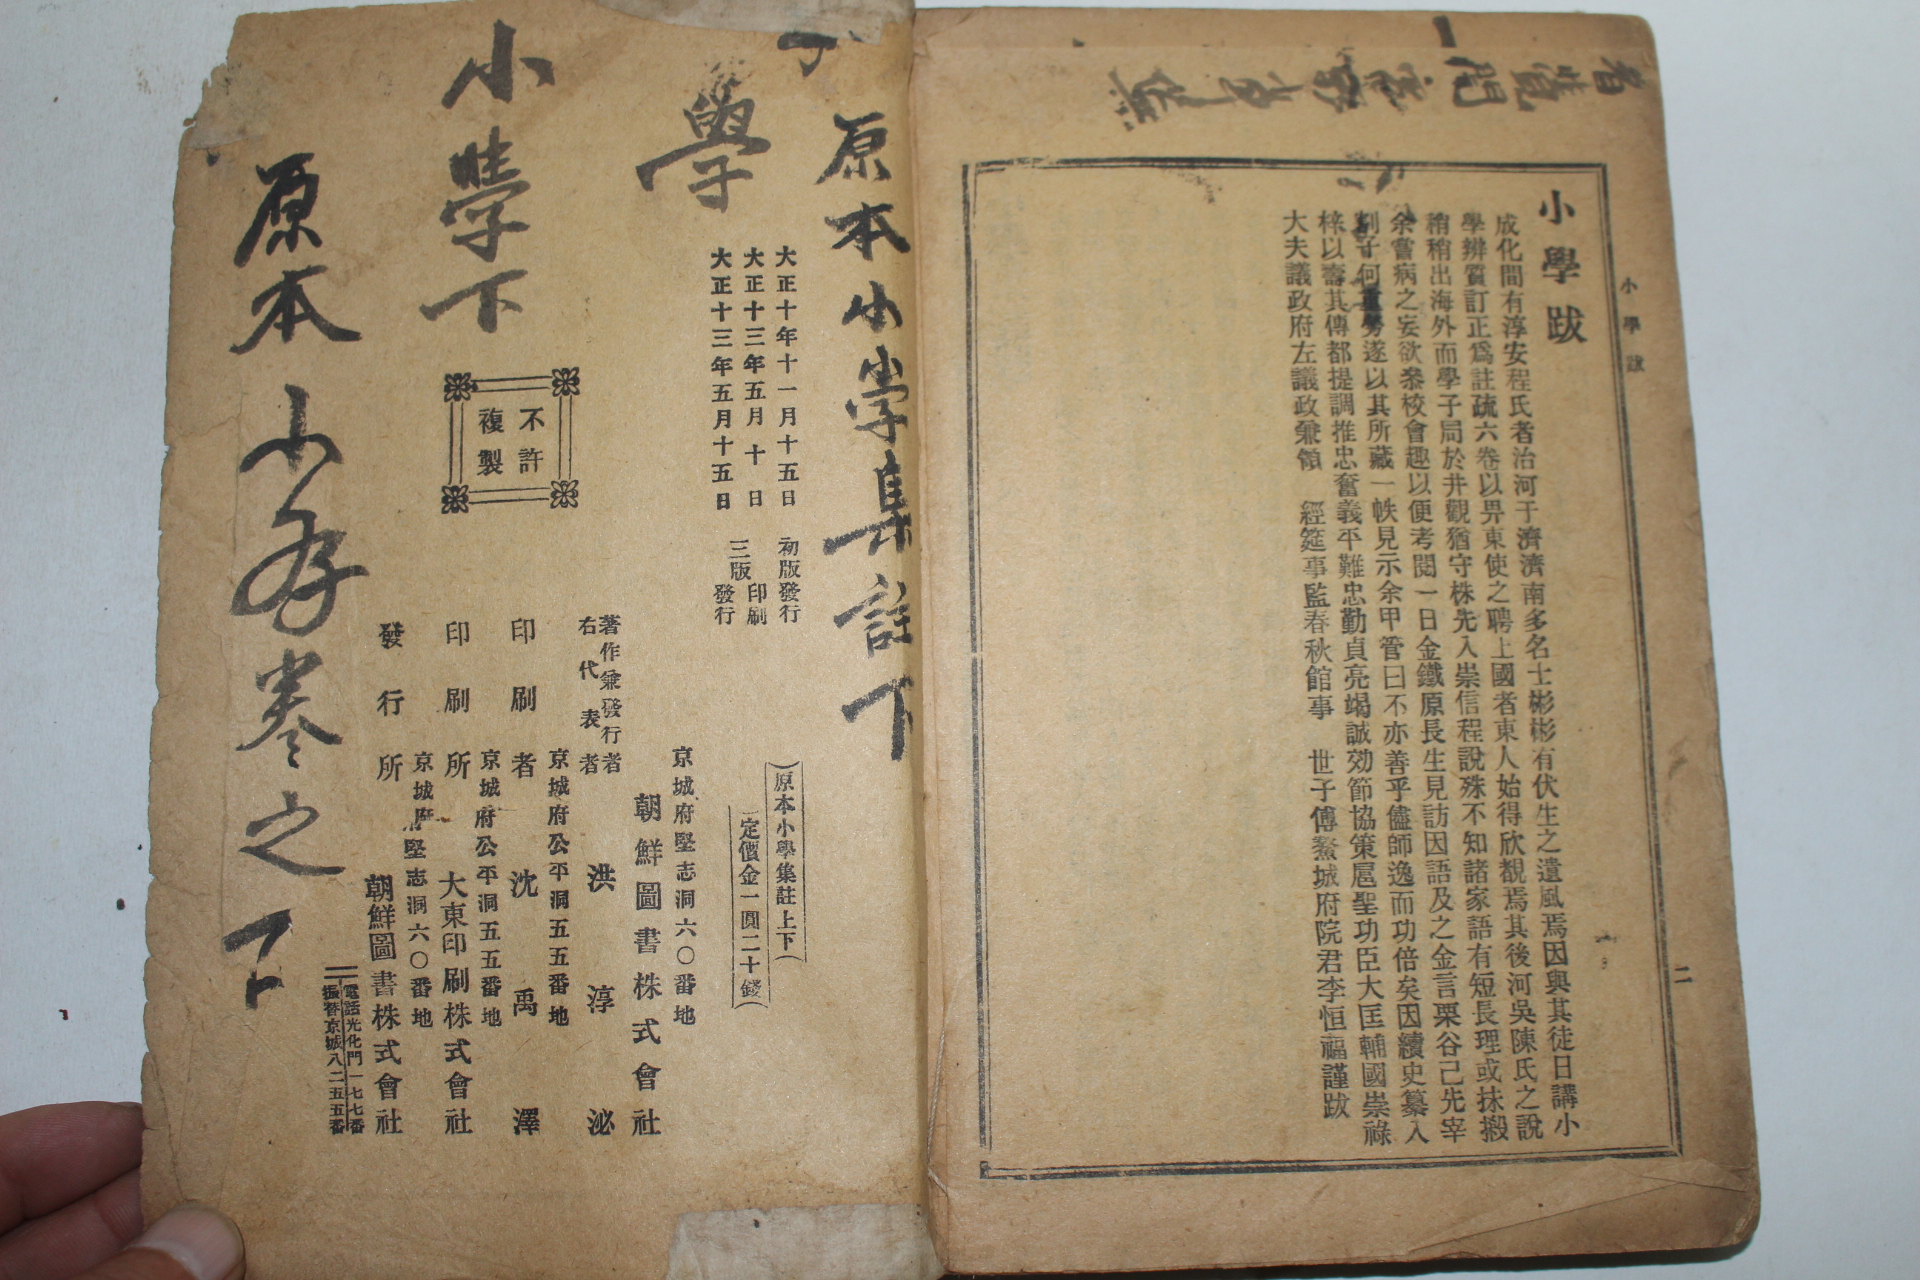 小學跋
成化間有淳安程氏者治河于濟濟南多名士彬彬有伏生之遺風焉因與其徒日講小
學辨質訂正爲註疏六卷以畀東使之聘上國者東人始得欣覩焉其後河吳陳氏之說
稍稍出海外而學子局於井觀猶守株先入崇信程說殊不知諸家語有短長理或抹搬
余嘗病之妄欲叅校會趣以便考閱一日金鐵原長生見訪因語及之金言栗谷己先宰
割子何重勞遂以其所藏一帙見示余甲管曰不亦善乎儘師逸而功倍矣因續史纂入
梓以壽其傳都提調推忠奮義平難忠勤貞亮竭誠効節協策扈聖功臣大匡輔國崇祿
大夫議政府左議政兼領　經筵事監春秋館事　世子傅鰲城府院君李恒福謹跋
小學跋
二
原本小學集註下
學
小學下
原本小学卷之下
大正十年十一月十五日 初版發行
大正十三年五月十日 印刷
大正十三年五月十五日 三版發行
原本小學集註上下
定價金一圓二十錢
不許
複製
京城府堅志洞六〇番地
著作兼發行者 朝鮮圖書株式會社
右代表者 洪淳泌
京城府公平洞五五番地
印刷者 沈禹澤
京城府公平洞五五番地
印刷所 大東印刷株式會社
京城府堅志洞六〇番地
發行所 朝鮮圖書株式會社
電話光化門一七七番
振替京城八二五五番